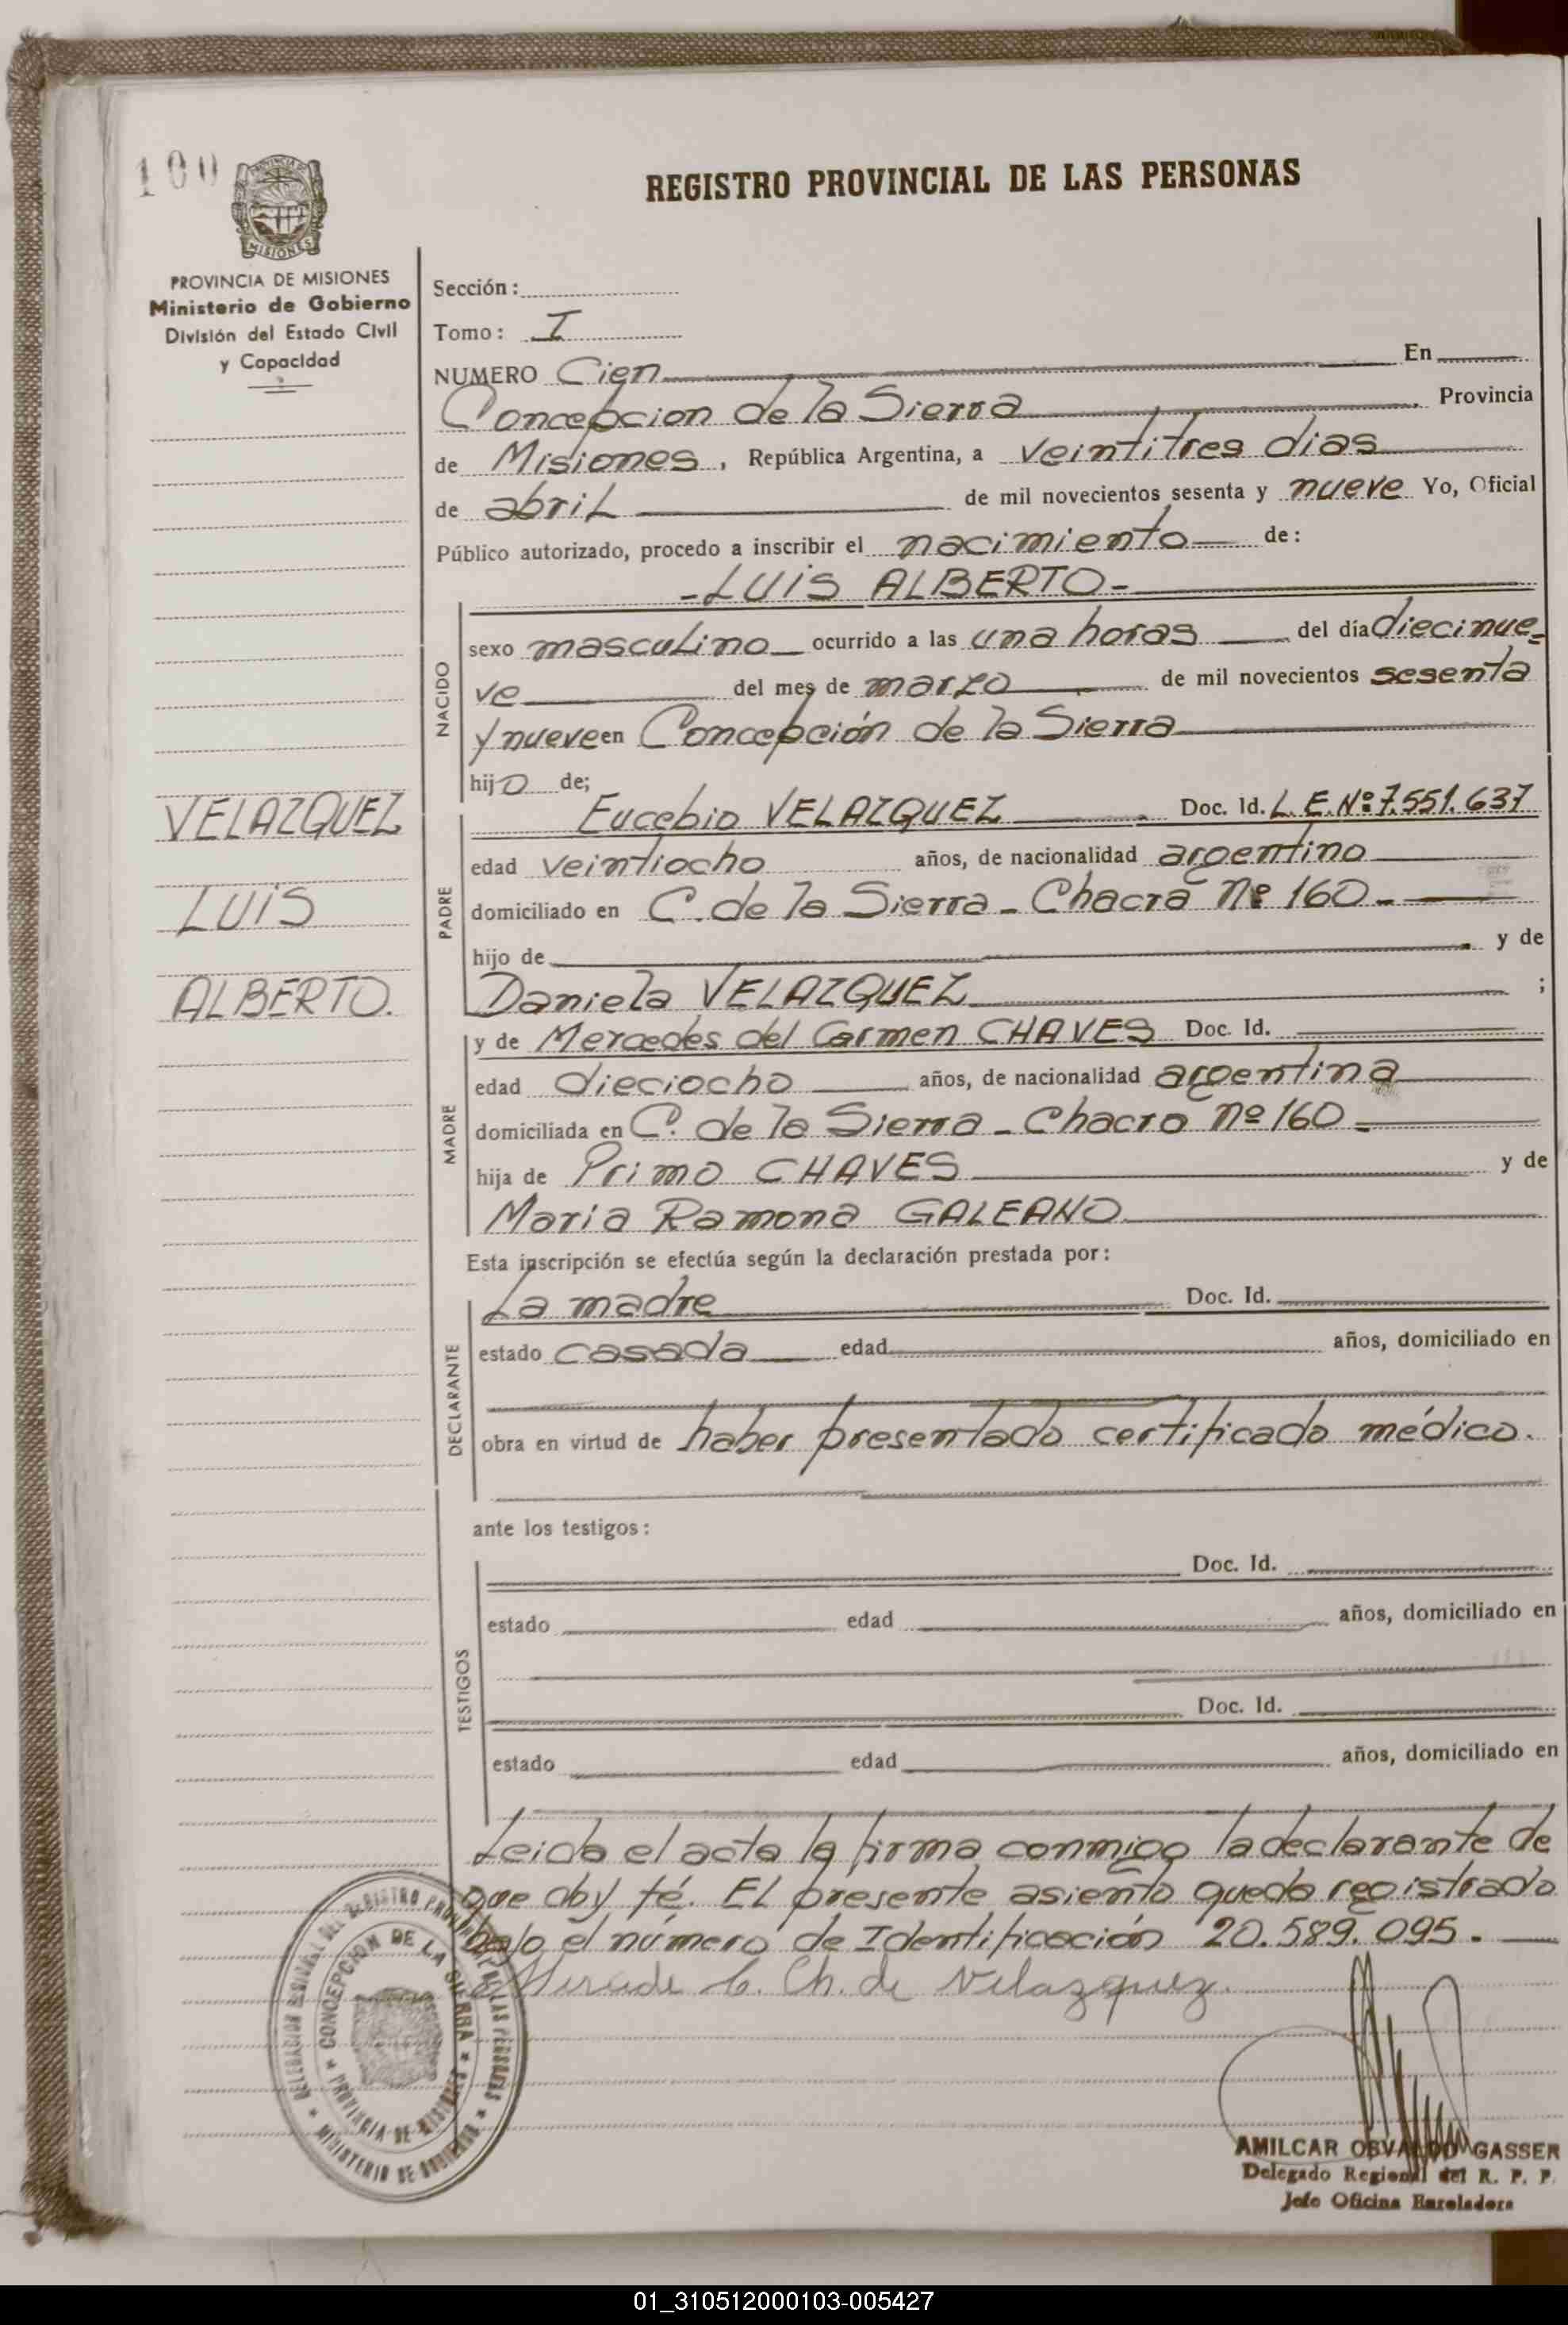 100
PROVINCIA DE
MISIONES
REGISTRO PROVINCIAL DE LAS PERSONAS
PROVINCIA DE MISIONES
Ministerio de Gobierno
División del Estado Civil
y Capacidad
Sección:
Tomo: I
NUMERO Cien En
Concepcion de la Sierra Provincia
de Misiones, República Argentina, a veintitres dias
de abril de mil novecientos sesenta y nueve Yo, Oficial
Público autorizado, procedo a inscribir el nacimiento de:
-LUIS ALBERTO-
NACIDO
sexo masculino ocurrido a las una horas del día diecinue=
ve del mes de marzo de mil novecientos sesenta
y nueve en Concepción de la Sierra
hijo de;
VELAZQUEZ
LUIS
ALBERTO.
PADRE
Eucebio VELAZQUEZ Doc. Id. L.E.Nº7.551.637
edad veintiocho años, de nacionalidad argentino
domiciliado en C. de la Sierra - Chacra Nº 160.-
hijo de y de
Daniela VELAZQUEZ ;
MADRE
y de Mercedes del Carmen CHAVES Doc. Id.
edad dieciocho años, de nacionalidad argentina
domiciliada en C. de la Sierra - Chacra nº 160.-
hija de Primo CHAVES y de
Maria Ramona GALEANO
Esta inscripción se efectúa según la declaración prestada por:
DECLARANTE
La madre Doc. Id.
estado casada edad años, domiciliado en
obra en virtud de haber presentado certificado médico.
ante los testigos:
TESTIGOS
Doc. Id.
estado edad años, domiciliado en
Doc. Id.
estado edad años, domiciliado en
Leida el acta la firma conmigo la declarante de
que doy fé. El presente asiento queda registrado
bajo el número de Identificación 20.589.095.-
C. Ch. de Velazquez.
CONCEPCION DE LA SIERRA
PROVINCIA DE MISIONES
MINISTERIO DE GOBIERNO
AMILCAR OSVALDO GASSER
Delegado Regional del R. P. P.
Jefe Oficina Enroladora
01_310512000103-005427